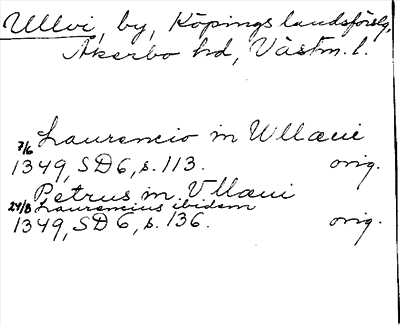 Ullvi, by, Köpings landsförslg,
Åkerbo hd, Västm. l.
7/6 Laurencio in Wllæui
1349, SD 6, s. 113. orig.
Petrus in Vllæui
24/8 Laurencius ibidem
1349, SD 6, s. 136. orig.